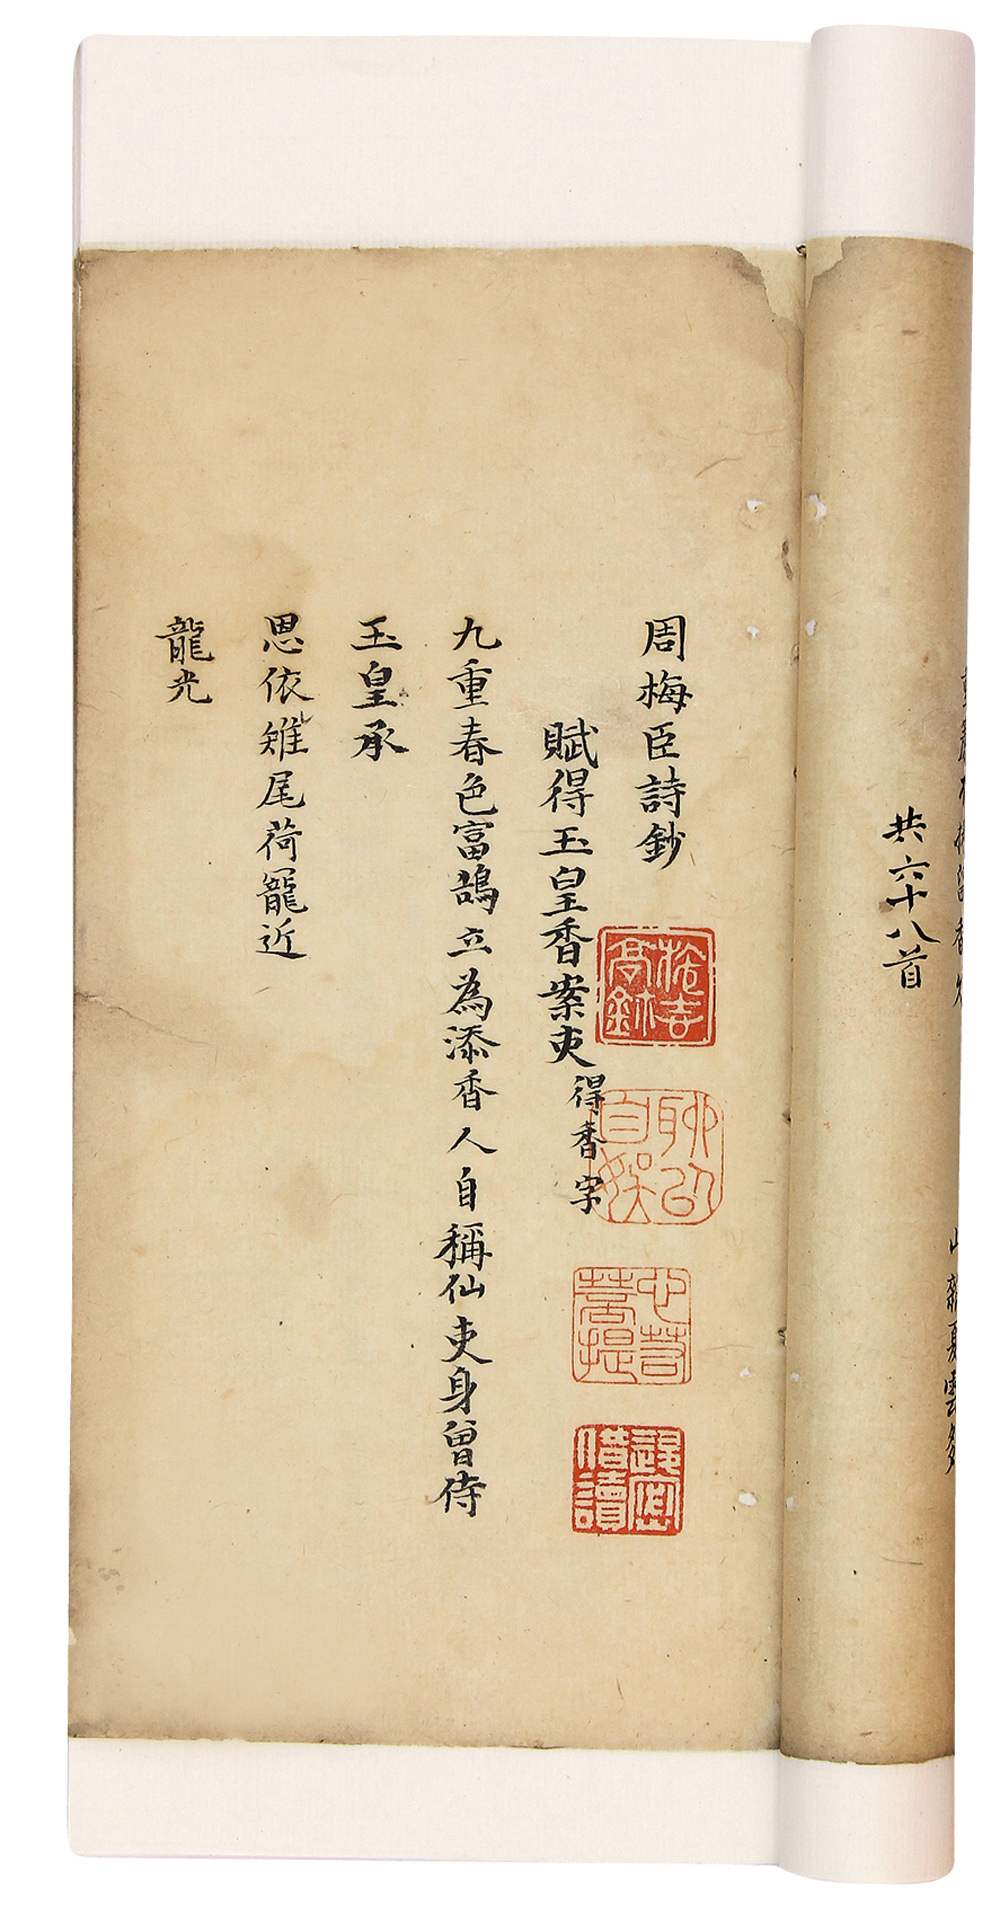 共六十八首
周梅臣詩鈔
賦得玉皇香案吏 得香字
九重春色富鵠立為添香人自稱仙吏身曾侍
玉皇承
恩依雉尾荷寵近
龍光
聊以自娱
心苦菩提
借讀